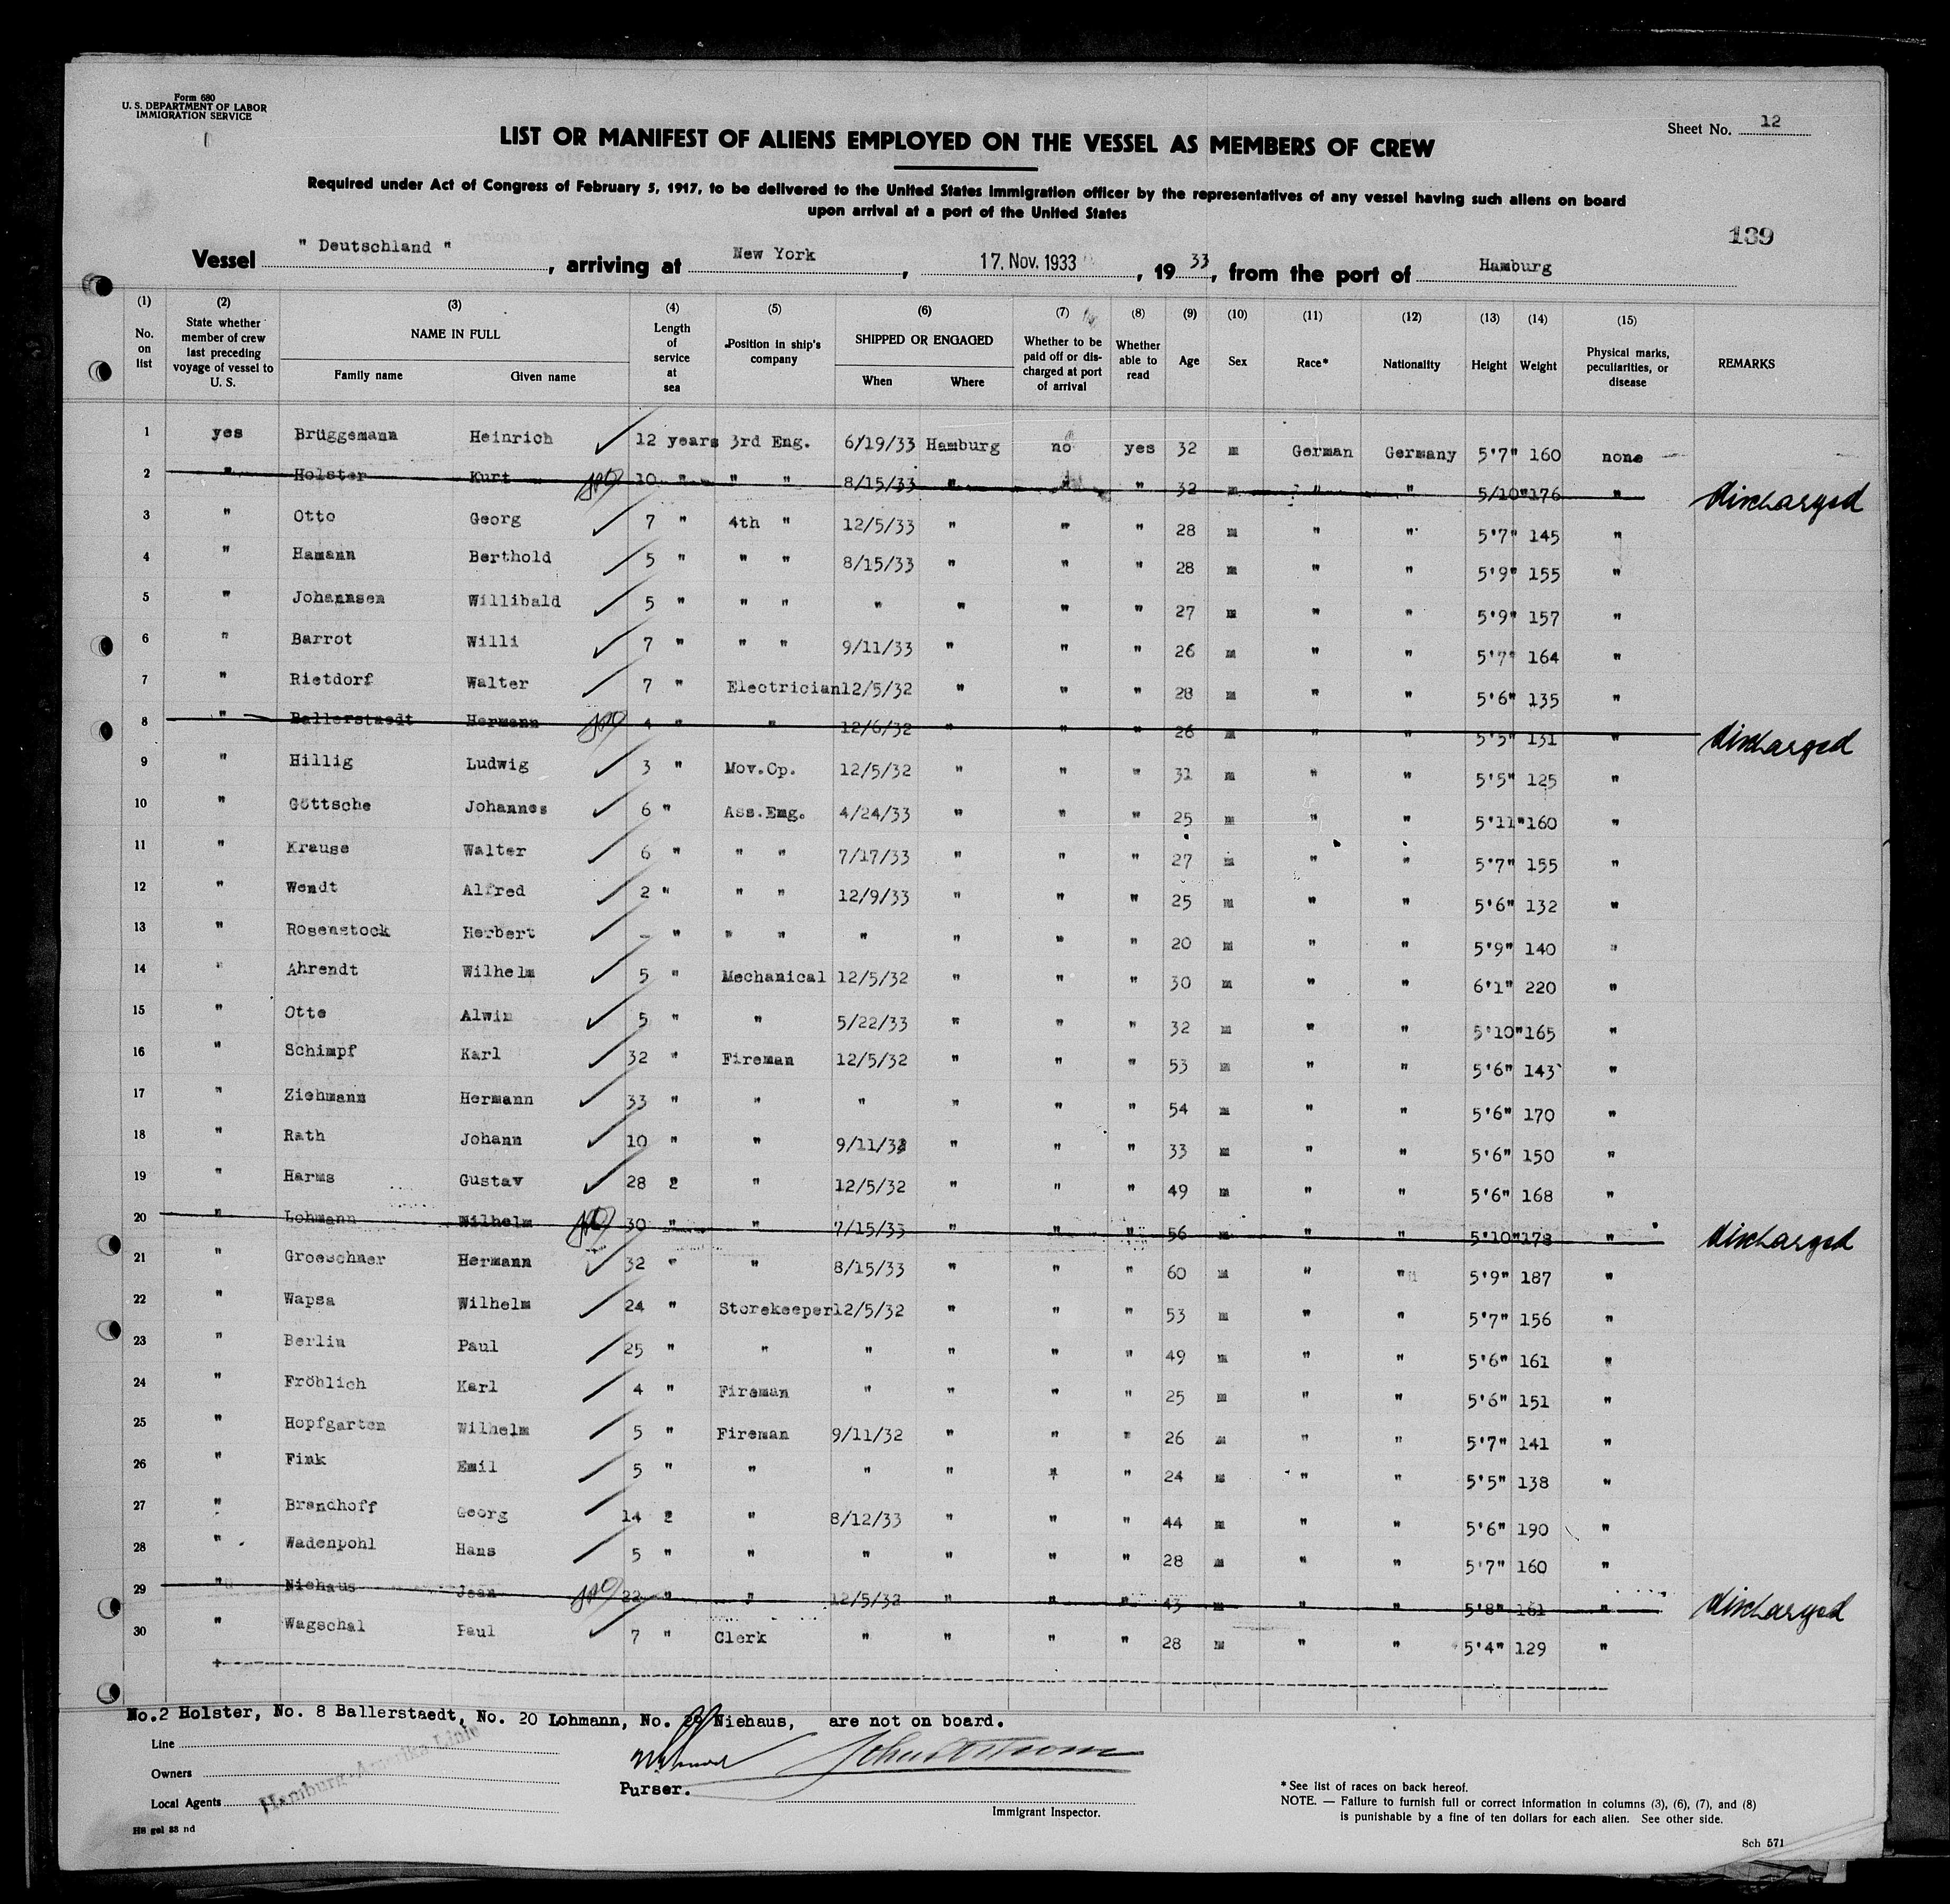 Form 680
U. S. DEPARTMENT OF LABOR
IMMIGRATION SERVICE
Sheet No. 12
LIST OR MANIFEST OF ALIENS EMPLOYED ON THE VESSEL AS MEMBERS OF CREW
Required under Act of Congress of February 5, 1917, to be delivered to the United States immigration officer by the representatives of any vessel having such aliens on board
upon arrival at a port of the United States
139
Vessel " Deutschland " , arriving at New York , 17. Nov. 1933 , 19 33 , from the port of Hamburg
(1) (2) (3) (4) (5) (6) (7) (8) (9) (10) (11) (12) (13) (14) (15)
No. on list
State whether member of crew last preceding voyage of vessel to U. S.
NAME IN FULL
Family name Given name
Length of service at sea
Position in ship's company
SHIPPED OR ENGAGED
When Where
Whether to be paid off or discharged at port of arrival
Whether able to read
Age Sex Race* Nationality Height Weight
Physical marks, peculiarities, or disease
REMARKS
1 yes Brüggemann Heinrich 12 years 3rd Eng. 6/19/33 Hamburg no yes 32 m German Germany 5'7" 160 none
2 " Holster Kurt 10 " " " 8/15/33 " " " 32 m " " 5/10" 176 " discharged
3 " Otto Georg 7 " 4th " 12/5/33 " " " 28 m " " 5'7" 145 "
4 " Hamann Berthold 5 " " " 8/15/33 " " " 28 m " " 5'9" 155 "
5 " Johannsen Willibald 5 " " " " " " " 27 m " " 5'9" 157 "
6 " Barrot Willi 7 " " " 9/11/33 " " " 26 m " " 5'7" 164 "
7 " Rietdorf Walter 7 " Electrician 12/5/32 " " " 28 m " " 5'6" 135 "
8 " Ballerstaedt Hermann 4 " " 12/6/32 " " " 26 m " " 5'5" 131 " discharged
9 " Hillig Ludwig 3 " Mov.Op. 12/5/32 " " " 31 m " " 5'5" 125 "
10 " Göttsche Johannes 6 " Ass.Eng. 4/24/33 " " " 25 m " " 5'11" 160 "
11 " Krause Walter 6 " " " 7/17/33 " " " 27 m " " 5'7" 155 "
12 " Wendt Alfred 2 " " " 12/9/33 " " " 25 m " " 5'6" 132 "
13 " Rosenstock Herbert - " " " " " " " 20 m " " 5'9" 140 "
14 " Ahrendt Wilhelm 5 " Mechanical 12/5/32 " " " 30 m " " 6'1" 220 "
15 " Otto Alwin 5 " " 5/22/33 " " " 32 m " " 5'10" 165 "
16 " Schimpf Karl 32 " Fireman 12/5/32 " " " 53 m " " 5'6" 143 "
17 " Ziehmann Hermann 33 " " " " " " 54 m " " 5'6" 170 "
18 " Rath Johann 10 " " 9/11/33 " " " 33 m " " 5'6" 150 "
19 " Harms Gustav 28 2 " 12/5/32 " " " 49 m " " 5'6" 168 "
20 " Lohmann Wilhelm 30 " " 7/15/33 " " " 56 m " " 5'10" 178 " discharged
21 " Groeschner Hermann 32 " " 8/15/33 " " " 60 m " " 5'9" 187 "
22 " Wapsa Wilhelm 24 " Storekeeper 12/5/32 " " " 53 m " " 5'7" 156 "
23 " Berlin Paul 25 " " " " " " 49 m " " 5'6" 161 "
24 " Fröhlich Karl 4 " Fireman " " " " 25 m " " 5'6" 151 "
25 " Hopfgarten Wilhelm 5 " Fireman 9/11/32 " " " 26 m " " 5'7" 141 "
26 " Fink Emil 5 " " " " " " 24 m " " 5'5" 138 "
27 " Brandhoff Georg 14 2 " 8/12/33 " " " 44 m " " 5'6" 190 "
28 " Wadenpohl Hans 5 " " " " " " 28 m " " 5'7" 160 "
29 " Niehaus Jean 22 " " 12/5/32 " " " 43 m " " 5'8" 161 " discharged
30 " Wagschal Paul 7 " Clerk " " " " 28 m " " 5'4" 129 "
No.2 Holster, No. 8 Ballerstaedt, No. 20 Lohmann, No. 29 Niehaus, are not on board.
Line
Owners
Local Agents
Hamburg-Amerika Linie
Purser.
Immigrant Inspector.
* See list of races on back hereof.
NOTE. — Failure to furnish full or correct information in columns (3), (6), (7), and (8)
is punishable by a fine of ten dollars for each alien. See other side.
HB gel 33 nd
Sch 571